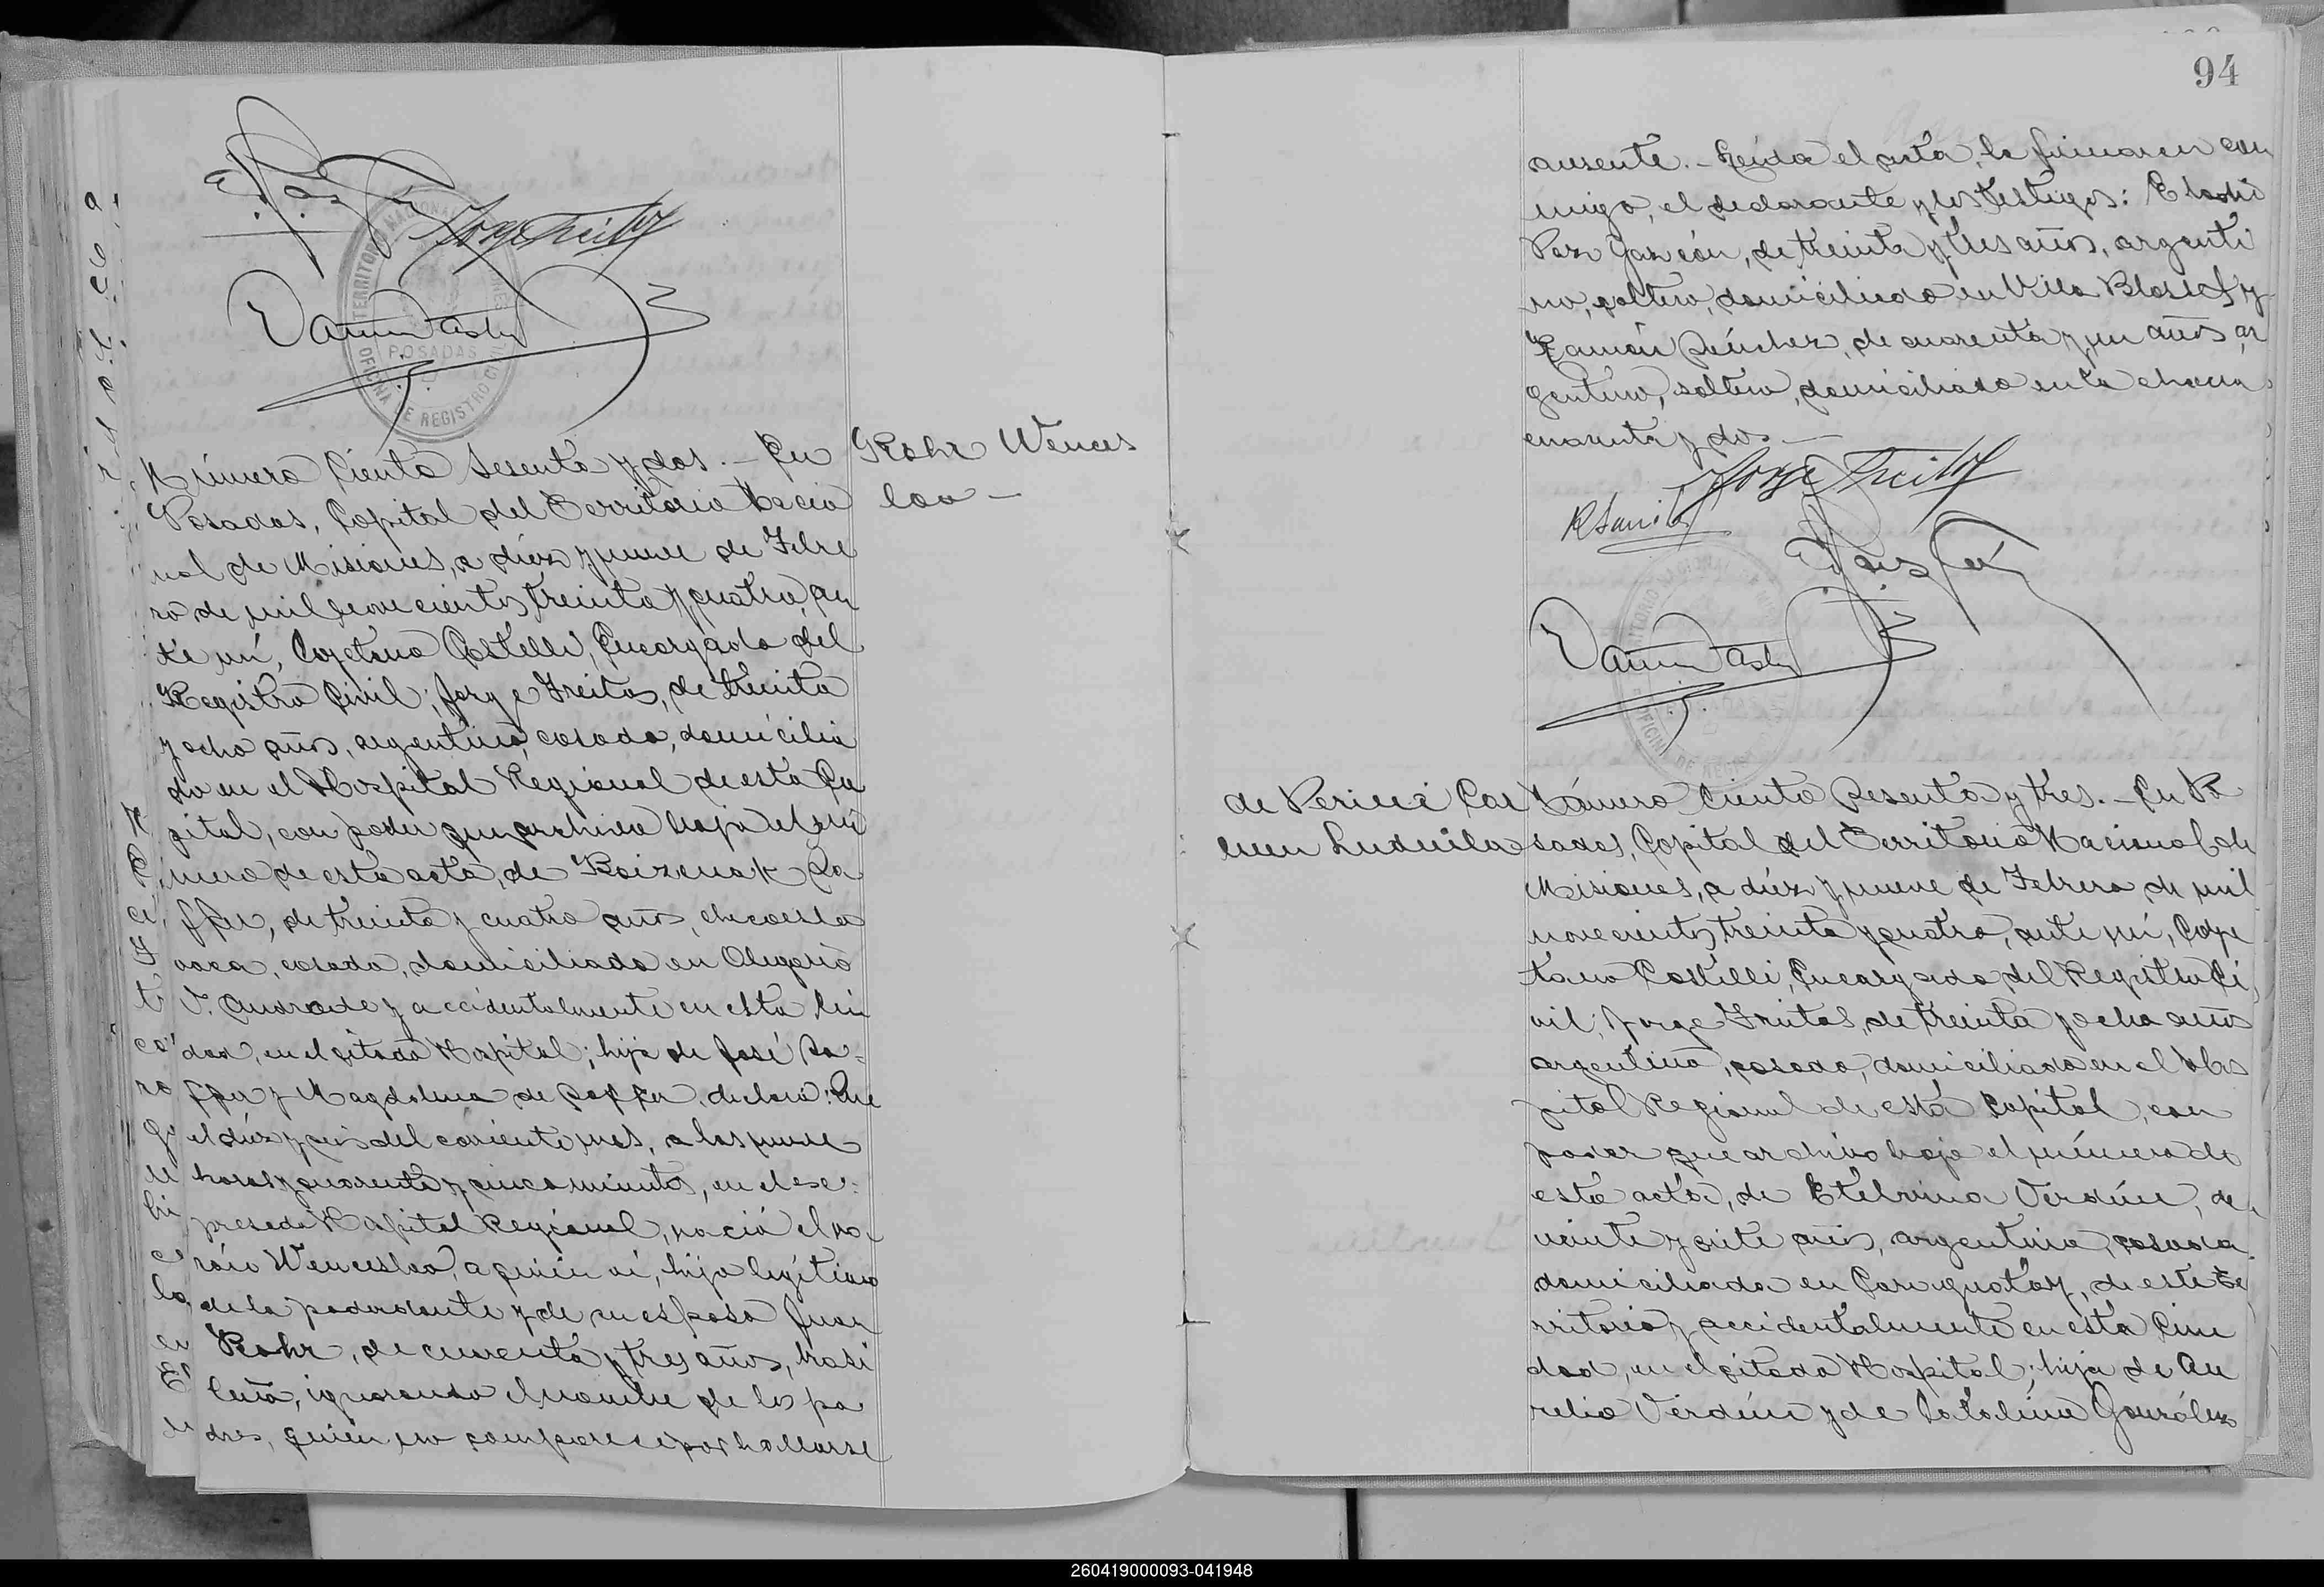 94
Rohr Wences
lao —
Número Ciento Sesenta y dos. — En
Posadas, Capital del Territorio Nacio
nal de Misiones, a diez y nueve de Febre
ro de mil novecientos treinta y cuatro, an
te mí, Cayetano Castelli, Encargado del
Registro Civil; Jorge Freitas, de treinta
y ocho años, argentino, casado, domicilia
do en el Hospital Regional de esta Ca
pital, con poder que archivo bajo el nú
mero de esta acta, de
ffer, de treinta y cuatro años, checoeslo
vaca, casada, domiciliada en Olegario
V. Andrade y accidentalmente en esta Ciu
dad, en el citado Hospital; hija de José Sa-
ffer y Magdalena de Saffer, declaró: Que
el diez y seis del corriente mes, a las nueve
horas y cuarenta y cinco minutos, en el ex-
presado Hospital Regional, nació el va-
rón Wenceslao, a quien ví, hijo legítimo
de la poderdante y de su esposo Juan
Rohr, de cuarenta y tres años, brasi
leño, ignorando el nombre de los pa
dres, quien no comparece por hallarse
ausente. — Leída el acta, la firmaron con
migo, el declarante y los testigos: Eladio
Paz Garzón, de treinta y tres años, argenti
no, soltero, domiciliado en Villa Blosset y
Ramón Sánchez, de cuarenta y un años, ar
gentino, soltero, domiciliado en la chacra
cuarenta y dos. —
de Perié Car
men Ludmila
Número Ciento Sesenta y tres. — En Po
sadas, Capital del Territorio Nacional de
Misiones, a diez y nueve de Febrero de mil
novecientos treinta y cuatro, ante mí, Caye
tano Castelli, Encargado del Registro Ci
vil; Jorge Freitas, de treinta y ocho años
argentino, casado, domiciliado en el Hos
pital Regional de esta Capital, con
poder que archivo bajo el número de
esta acta, de Etelvina Verdún, de
veinte y siete años, argentina, casada
domiciliada en Caraguatay, de este Te
rritorio y accidentalmente en esta Ciu
dad, en el citado Hospital; hija de Au
relio Verdún y de Catalina González
260419000093-041948